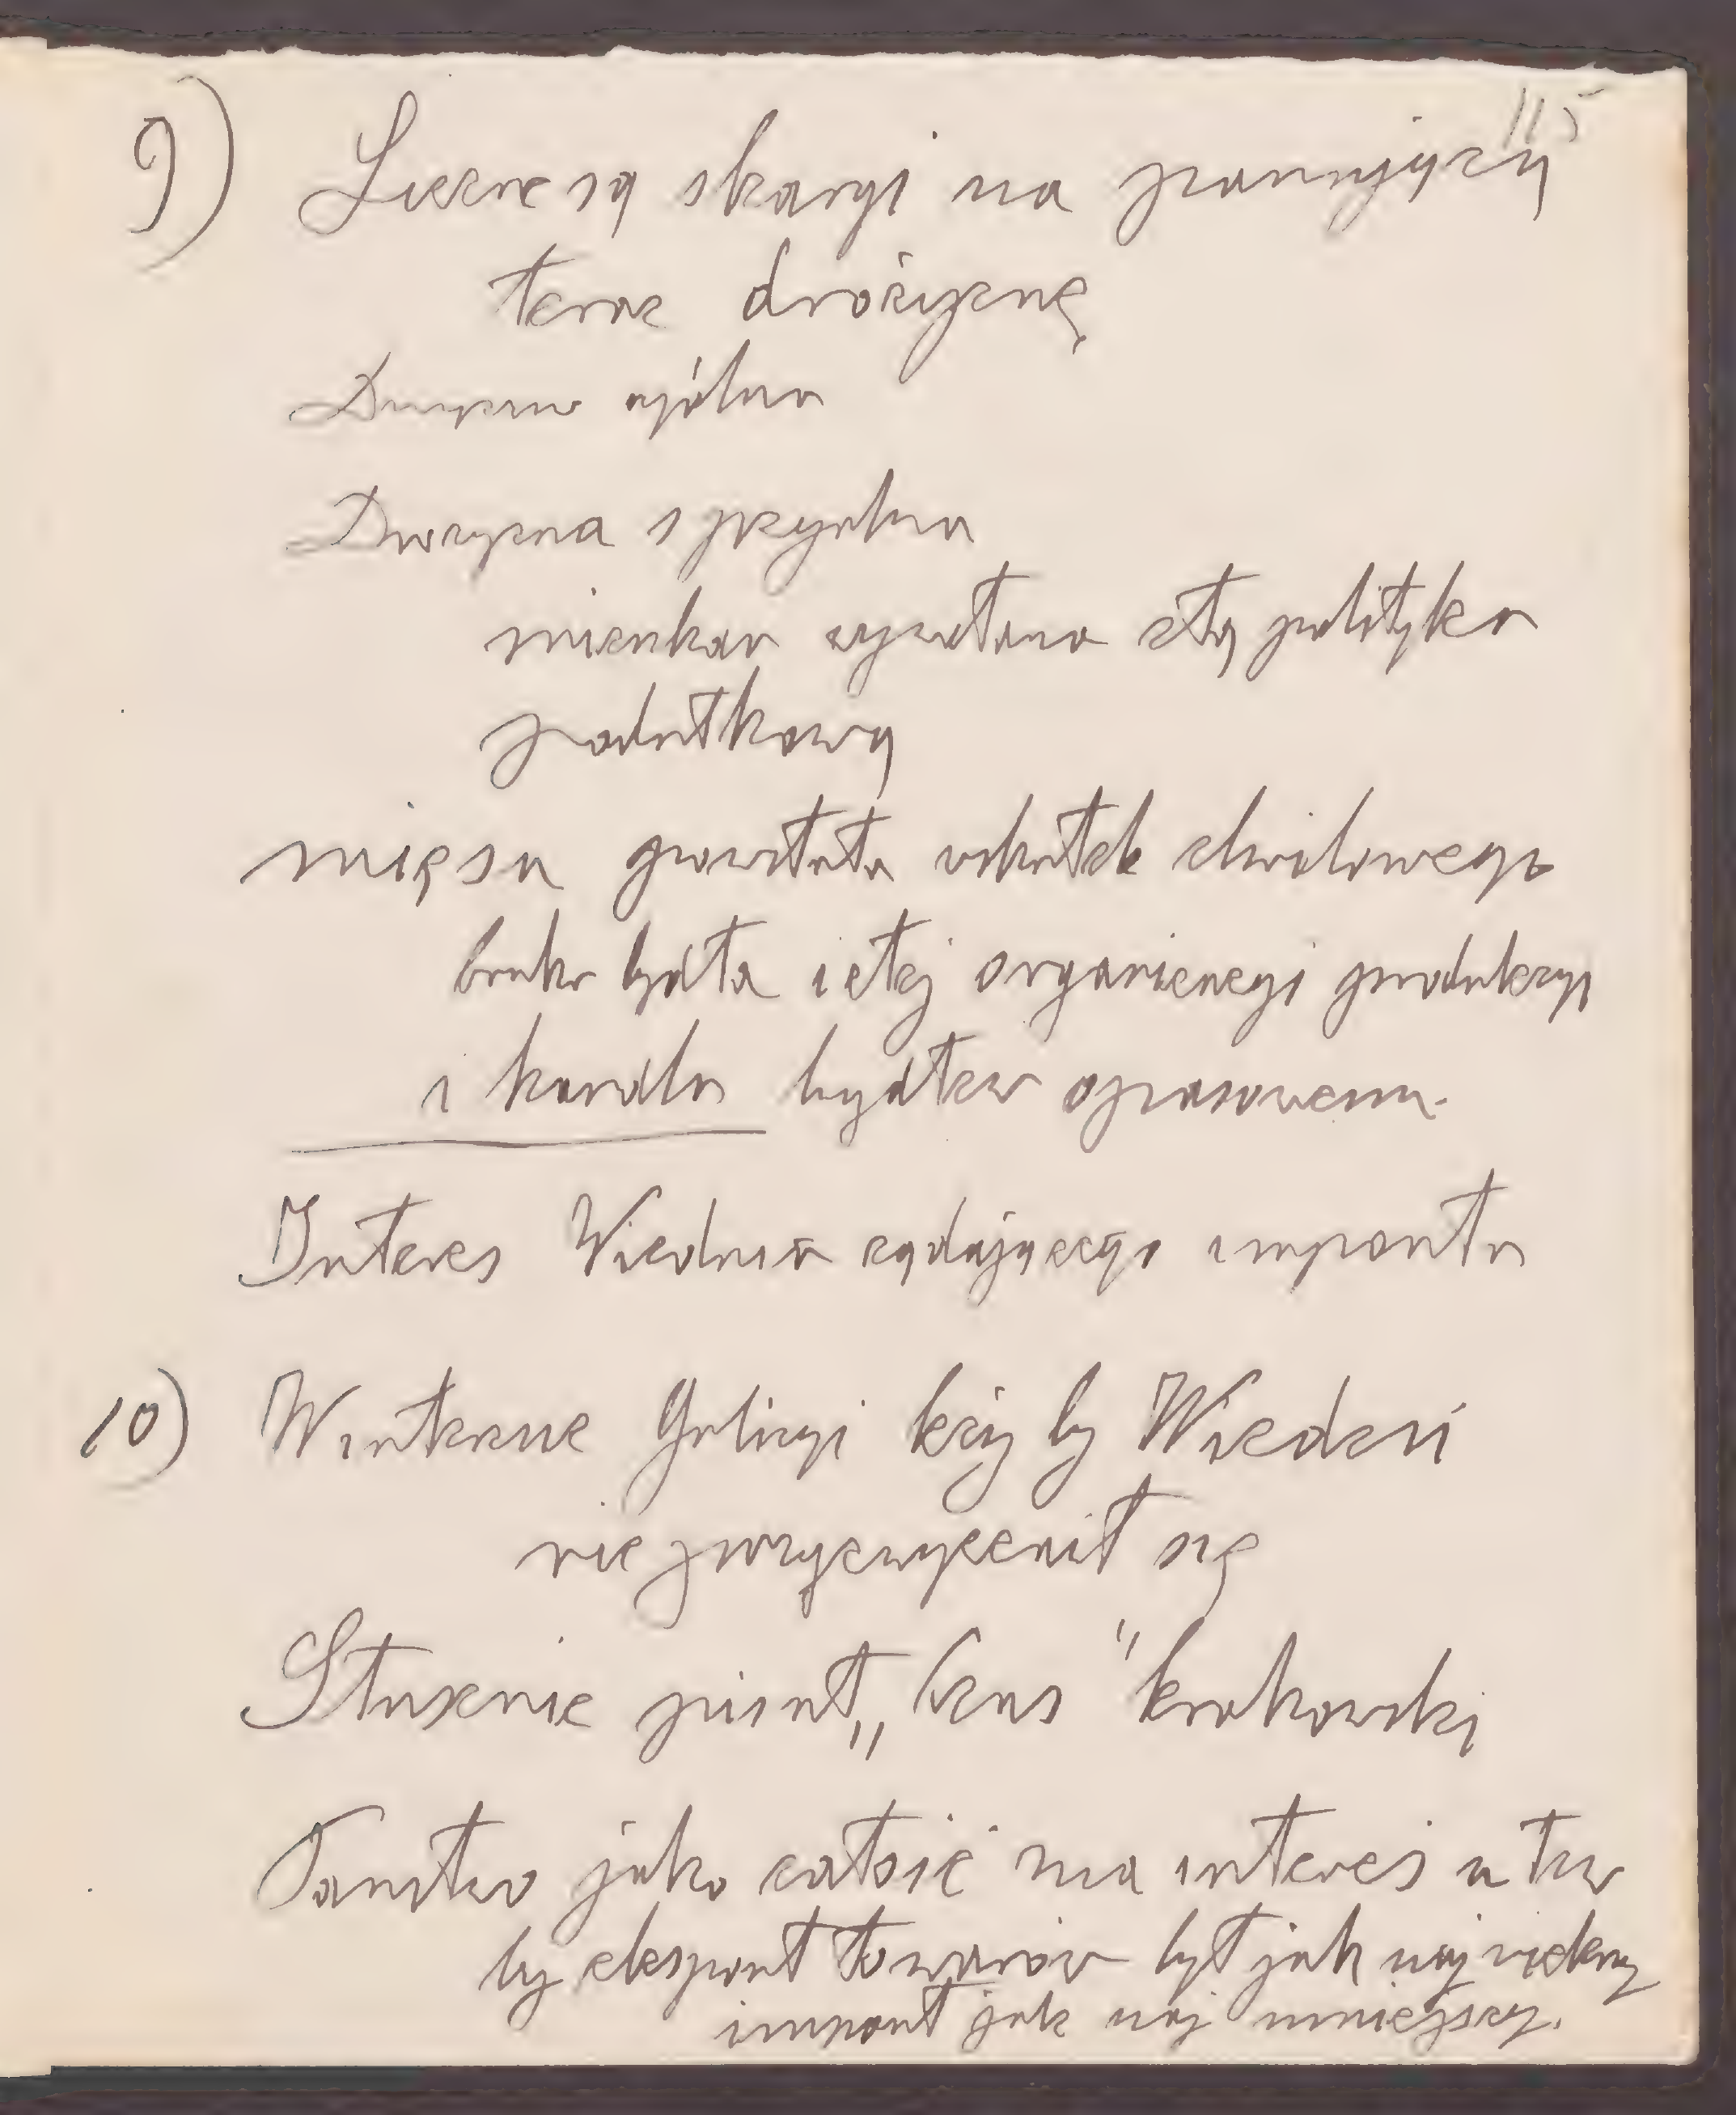 115
9) Liczne są skargi na panującą
teraz drożyznę
Drożyzna ogólna
Drożyzna specyalna
mieszkań wywołana złą polityką
podatkową
mięsa powstała wskutek chwilowego
braku bydła i złej organizacyi produkcyi
i handlu bydłem opasowem.
Interes Wiednia żądającego importu
10) W interesie Galicyi leży by Wiedeń
nie przyzwyczaił się
Słusznie pisał „Czas" krakowski
Państwo jako całość ma interes w tem
by eksport towarów był jak największy
import jak naj mniejszy.